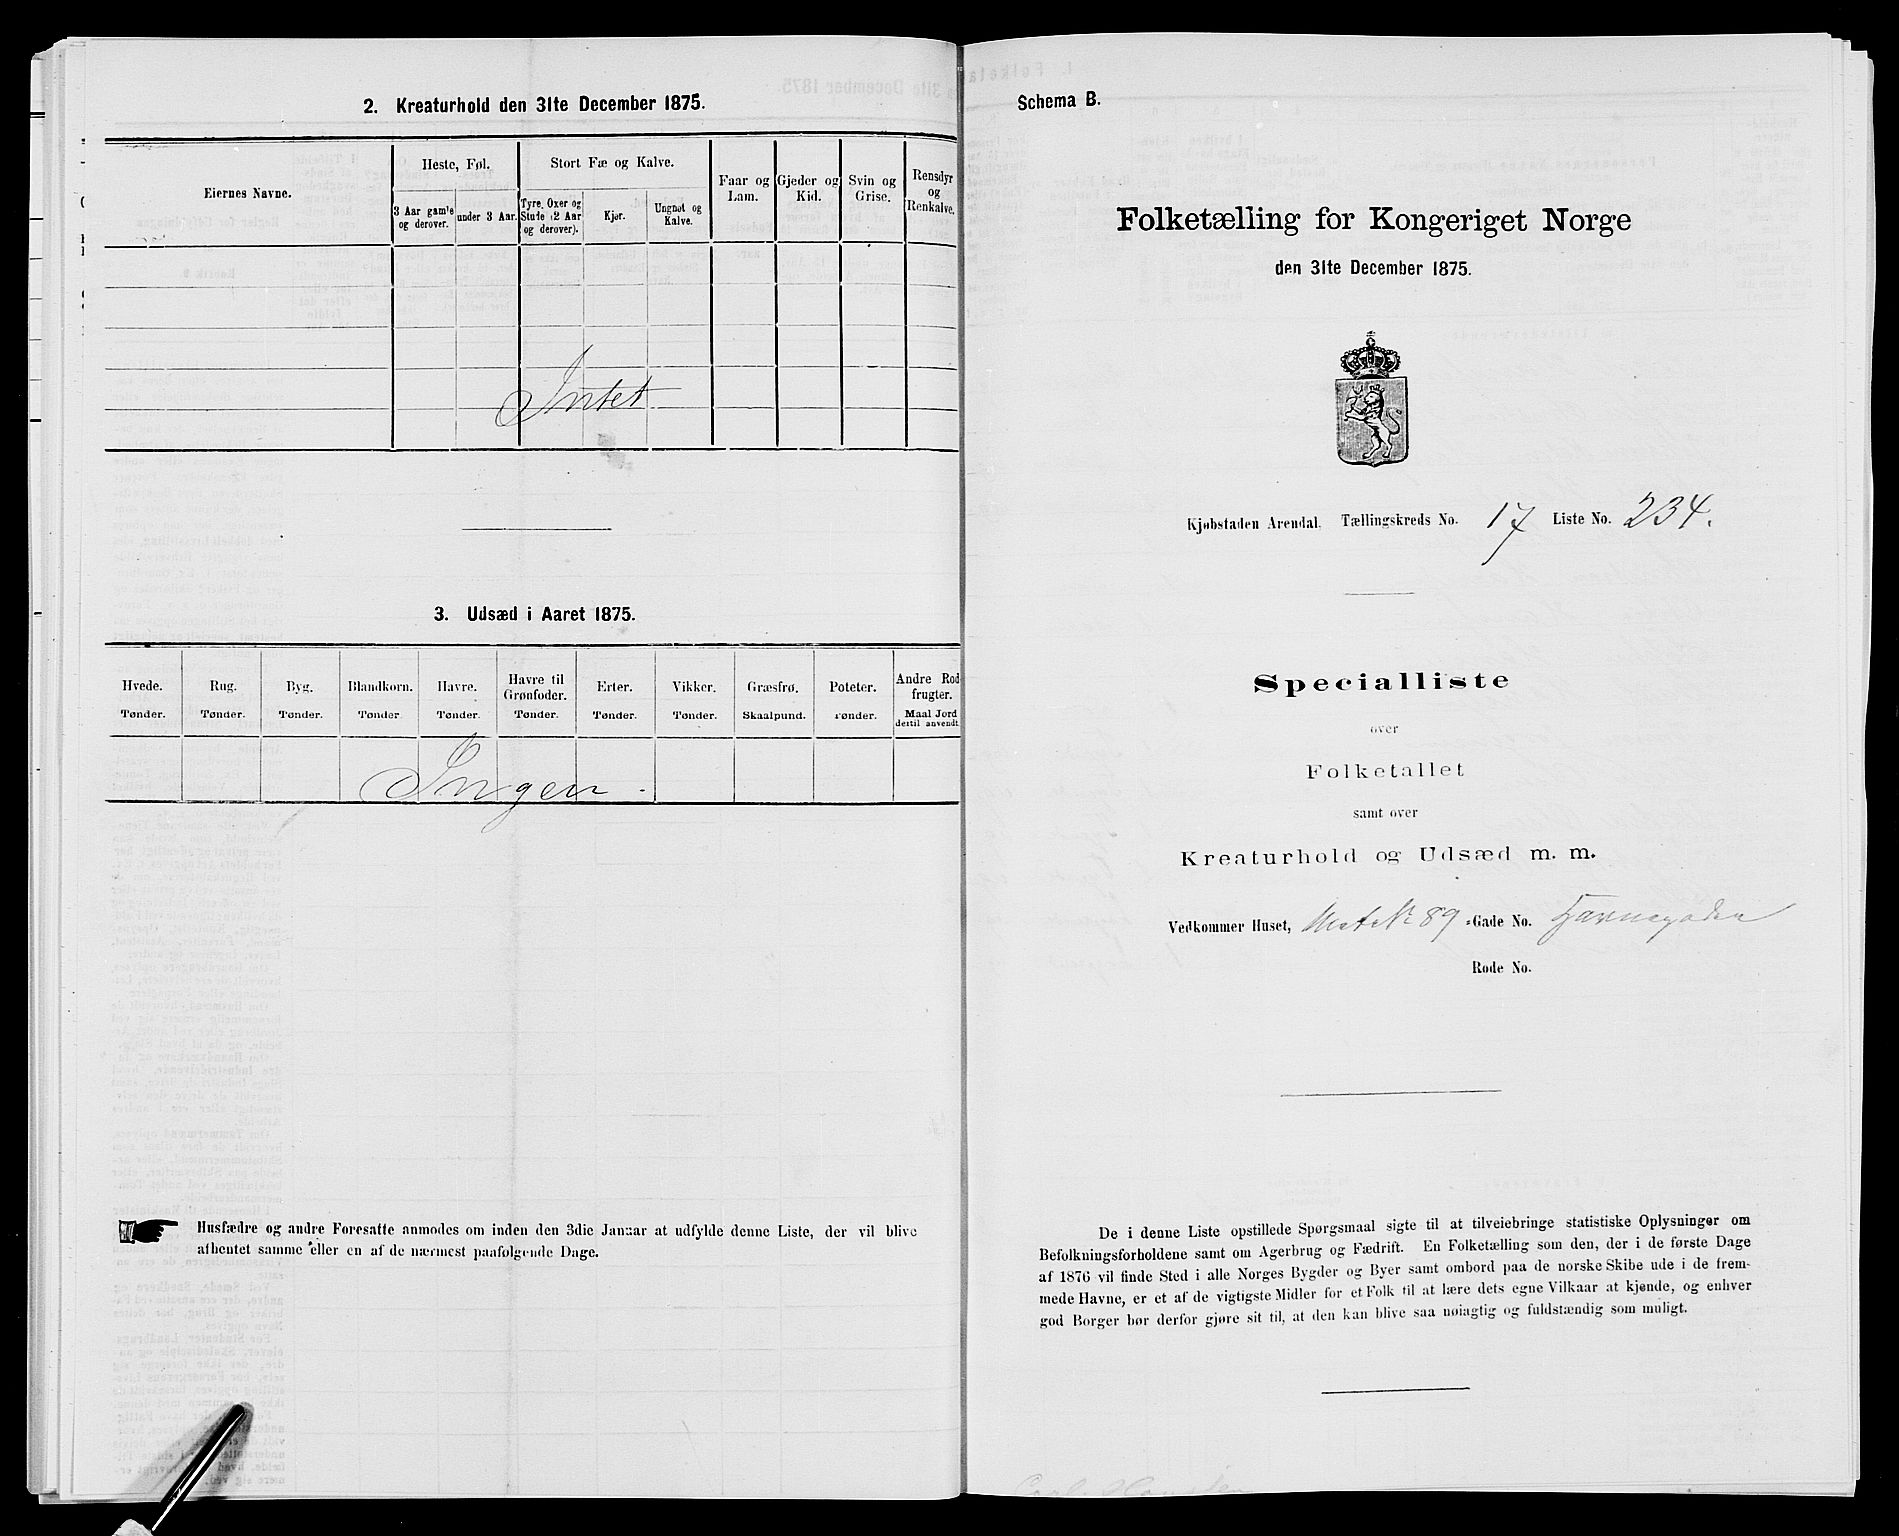 2. Kreaturhold den 31te December 1875.
Eiernes Navne.
Heste, Føl.
Stort Fæ og Kalve.
Faar og Lam.
Gjeder og Kid.
Svin og Grise.
Rensdyr og Renkalve.
3 Aar gamle og derover.
under 3 Aar.
Tyre, Oxer og Stude (2 Aar og derover).
Kjør.
Ungnøt og Kalve.
Intet
3. Udsæd i Aaret 1875.
Hvede. Rug. Byg. Blandkorn. Havre. Havre til Grønfoder. Erter. Vikker. Græsfrø. Poteter. Andre Rodfrugter.
Tønder. Tønder. Tønder. Tønder. Tønder. Tønder. Tønder. Tønder. Skaalpund. Tønder. Maal Jord dertil anvendt.
Ingen.
Husfædre og andre Foresatte anmodes om inden den 3die Januar at udfylde denne Liste, der vil blive
afhentet samme eller en af de nærmest paafølgende Dage.
Schema B.
Folketælling for Kongeriget Norge
den 31te December 1875.
Kjøbstaden Arendal. Tællingskreds No. 17 Liste No. 234.
Specialliste
over
Folketallet
samt over
Kreaturhold og Udsæd m. m.
Vedkommer Huset, Mat. No 89 -Gade No. Havnegaden
Rode No.
De i denne Liste opstillede Spørgsmaal sigte til at tilveiebringe statistiske Oplysninger om
Befolkningsforholdene samt om Agerbrug og Fædrift. En Folketælling som den, der i de første Dage
af 1876 vil finde Sted i alle Norges Bygder og Byer samt ombord paa de norske Skibe ude i de frem-
mede Havne, er et af de vigtigste Midler for et Folk til at lære dets egne Vilkaar at kjende, og enhver
god Borger bør derfor gjøre sit til, at den kan blive saa nøiagtig og fuldstændig som muligt.